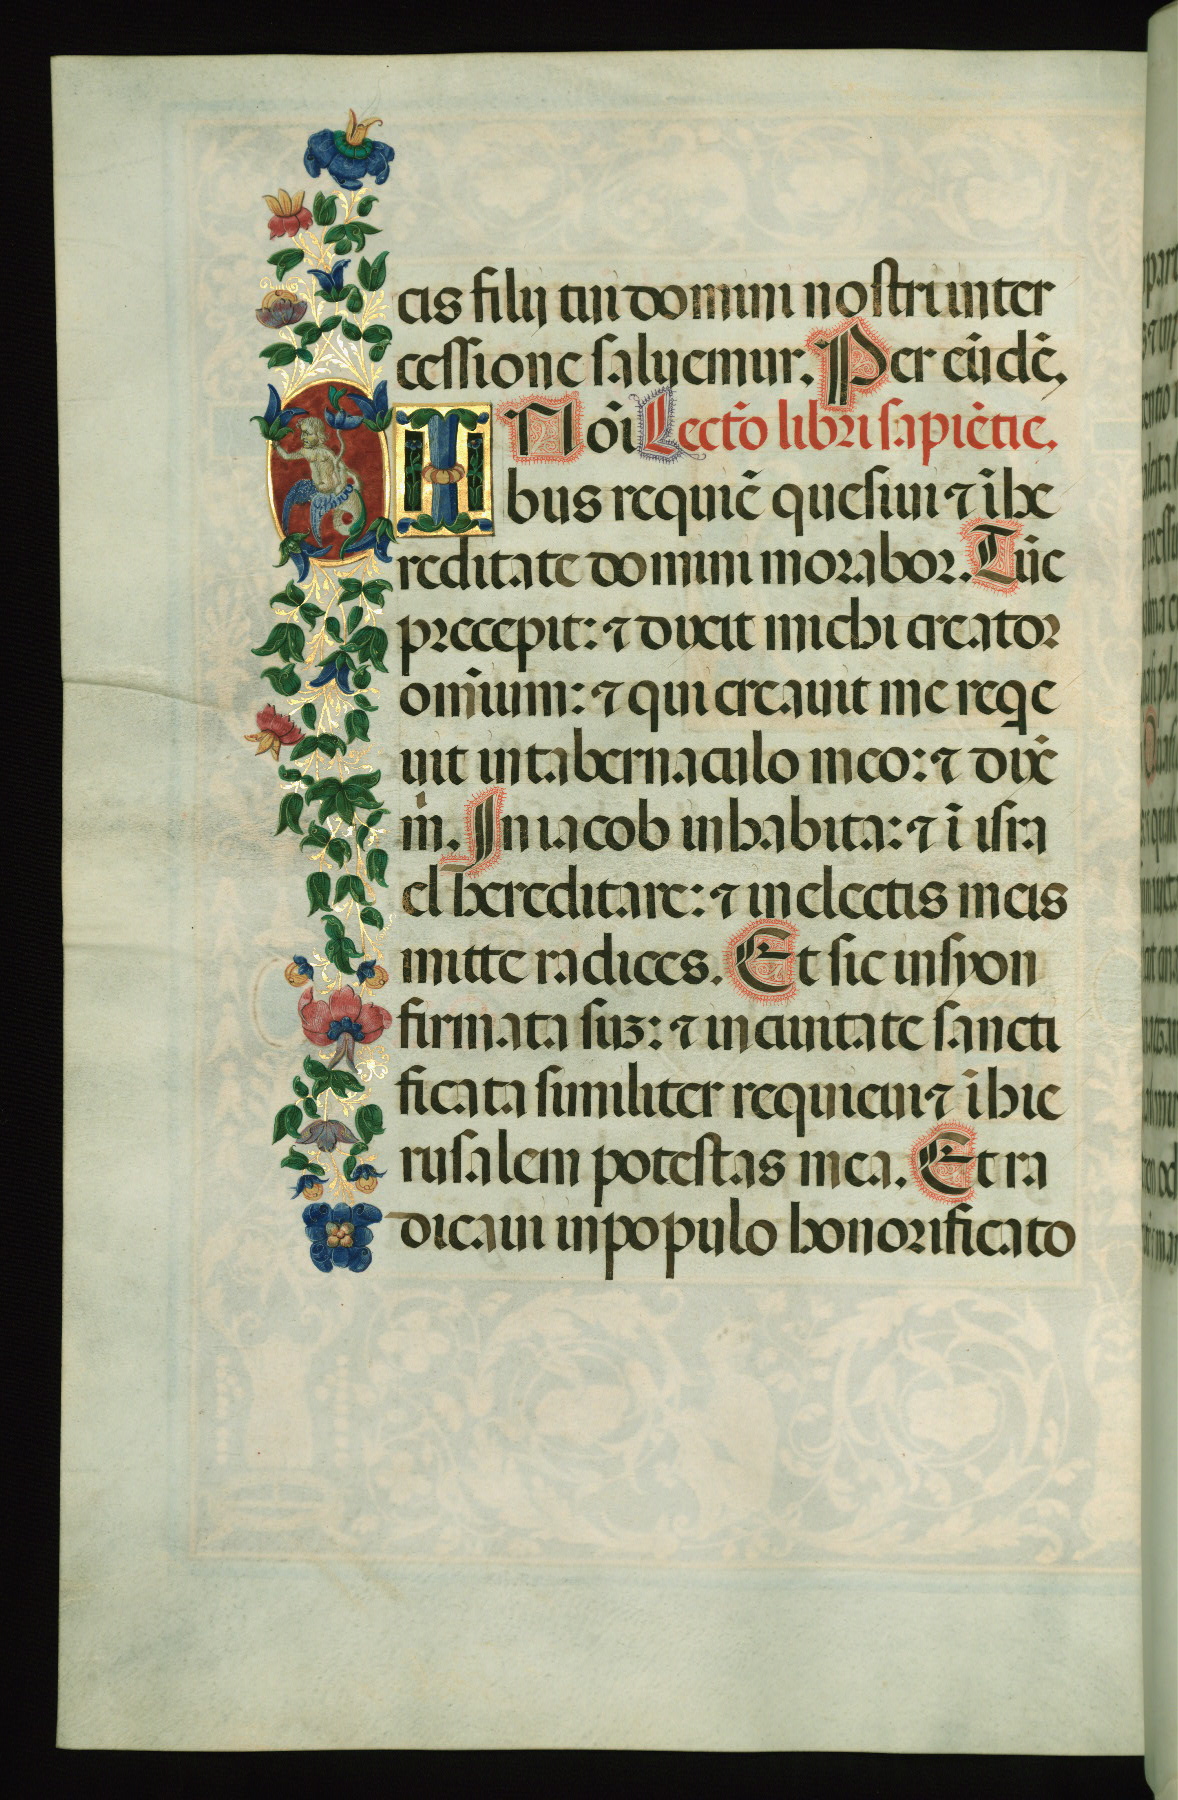 cis filij tui domini nostri inter
cessione saluemur. Per eūdē.
IN oı̄ Lectō libri sapiētie.
bus requiē quesiui ⁊ ī he
reditate domini morabor. Tūc
precepit: ⁊ dixit michi creator
omīum: ⁊ qui creauit me reqe
uit in tabernaculo meo: ⁊ dix̄
m̄. In iacob inhabita: ⁊ ī isra
el hereditare: ⁊ in electis meis
mitte radices. Et sic in syon
firmata suꝫ: ⁊ in ciuitate sancti
ficata similiter requieui ⁊ ī hie
rusalem potestas mea. Et ra
dicaui in populo honorificato